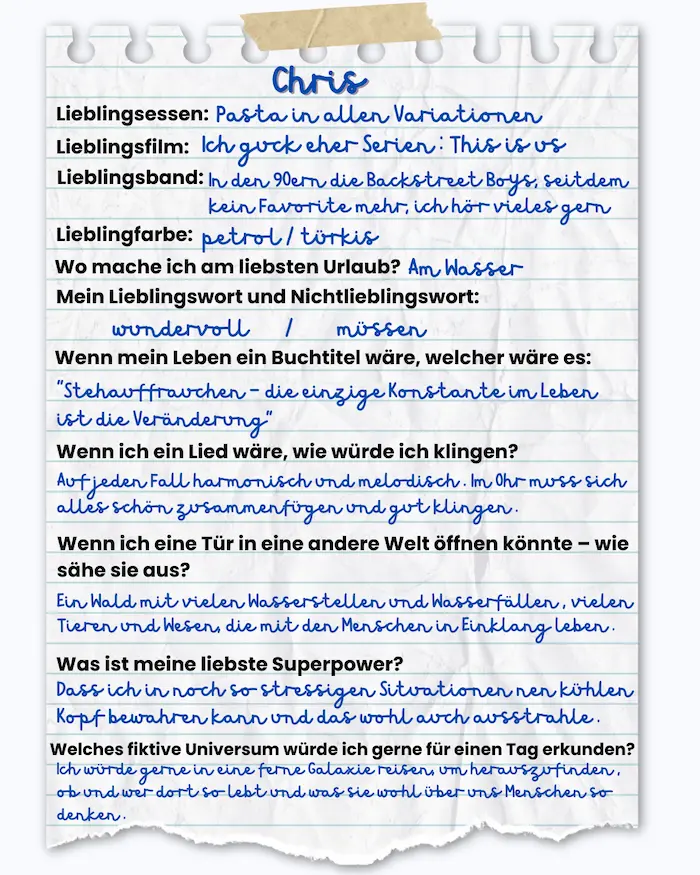 Chris
Lieblingsessen: Pasta in allen Variationen
Lieblingsfilm: Ich guck eher Serien: This is us
Lieblingsband: In den 90ern die Backstreet Boys, seitdem
kein Favorite mehr, ich hör vieles gern
Lieblingfarbe: petrol / türkis
Wo mache ich am liebsten Urlaub? Am Wasser
Mein Lieblingswort und Nichtlieblingswort:
wundervoll / müssen
Wenn mein Leben ein Buchtitel wäre, welcher wäre es:
"Stehauffrauchen - die einzige Konstante im Leben
ist die Veränderung"
Wenn ich ein Lied wäre, wie würde ich klingen?
Auf jeden Fall harmonisch und melodisch. Im Ohr muss sich
alles schön zusammenfügen und gut klingen.
Wenn ich eine Tür in eine andere Welt öffnen könnte – wie
sähe sie aus?
Ein Wald mit vielen Wasserstellen und Wasserfällen, vielen
Tieren und Wesen, die mit den Menschen in Einklang leben.
Was ist meine liebste Superpower?
Dass ich in noch so stressigen Situationen nen kühlen
Kopf bewahren kann und das wohl auch ausstrahle.
Welches fiktive Universum würde ich gerne für einen Tag erkunden?
Ich würde gerne in eine ferne Galaxie reisen, um herauszufinden,
ob und wer dort so lebt und was sie wohl über uns Menschen so
denken.